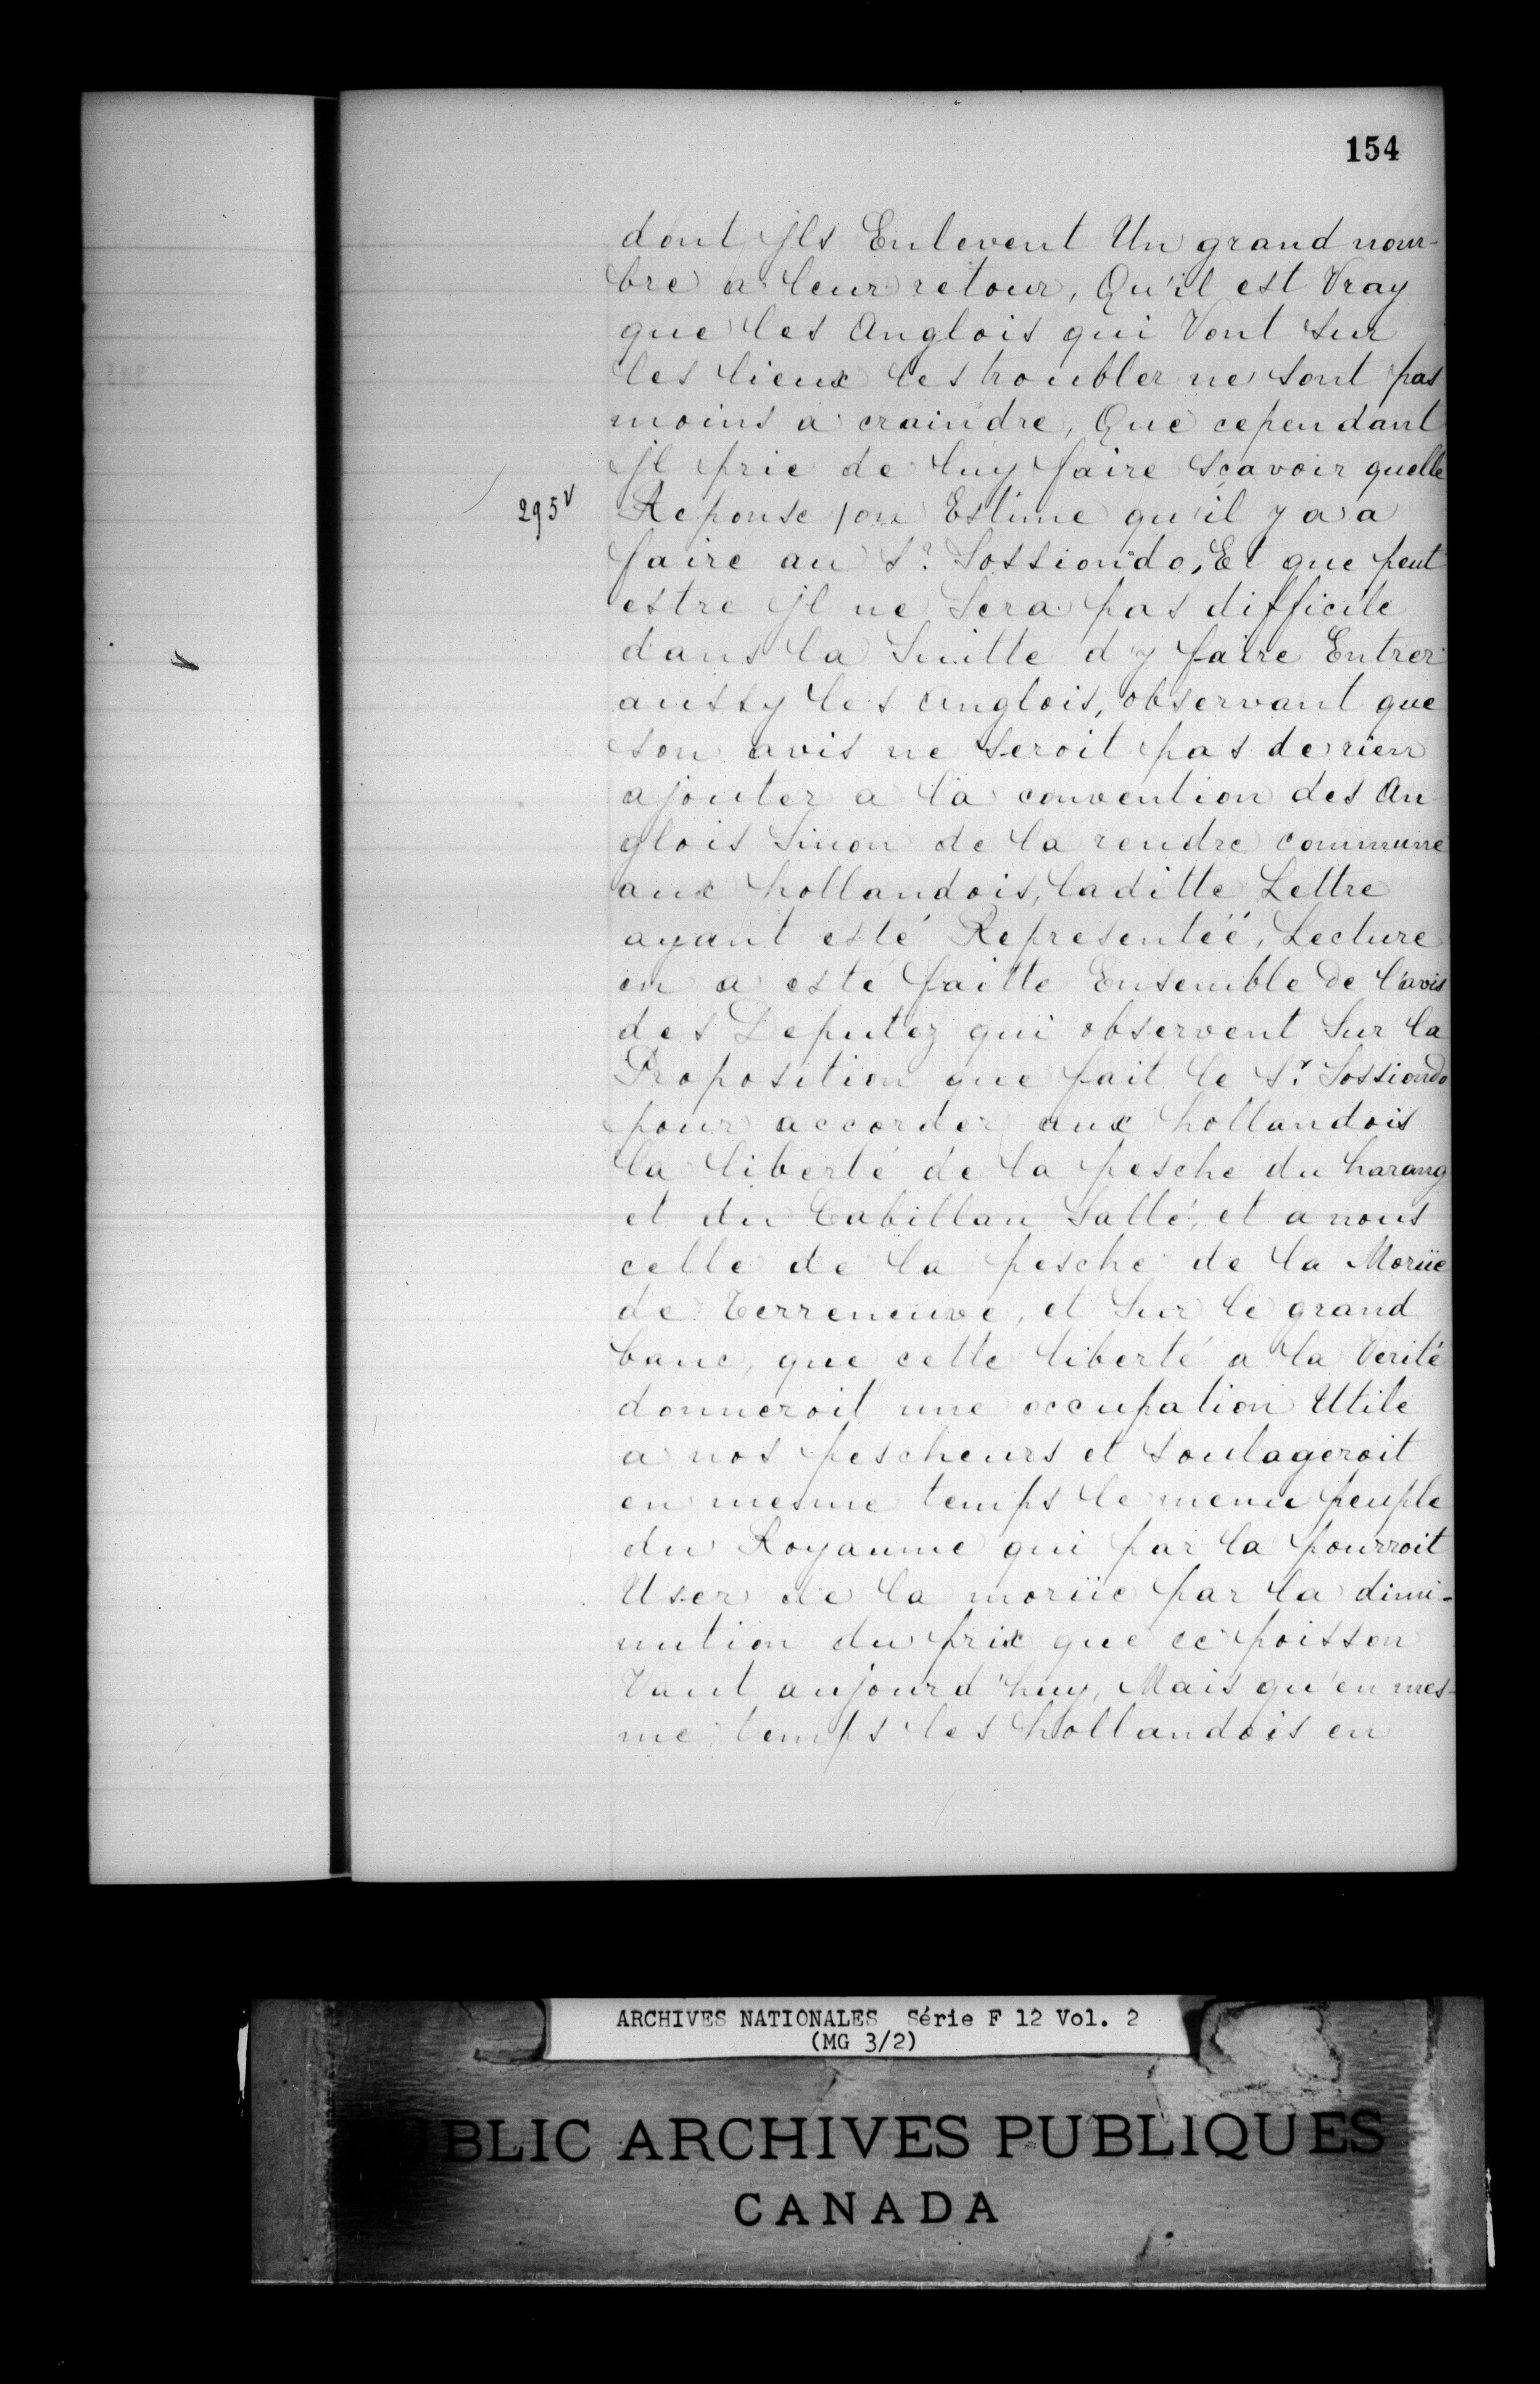 154
dont jls Enlevent Un grand nom-
bre a leur retour, Qu'il est Vray
que les Anglois qui Vont sur
les lieux les troubler ne sont pas
moins a craindre, Que cependant
jl prie de luy faire sçavoir quelle
295v
Reponse / on Estime qu'il y a a
faire au Sr. Sossiondo, Et que peut
estre jl ne Sera pas difficile
dans la Suitte d'y faire Entrer
aussy les Anglois, observant que
son avis ne seroit pas de rien
ajouter a la convention des An
glois Sinon de la rendre commune
aux hollandois, laditte Lettre
ayant esté Representéé, Lecture
en a esté faitte Ensemble De l'avis
des Deputez qui observent Sur la
Proposition que fait le Sr. Sossiondo
pour accorder aux hollandois
la liberté de la pesche du harang
et du Cabillau Sallé, et a nous
celle de la pesche de la Moriie
de Terreneuve, et Sur le grand
banc, que cette liberté a la Verité
donneroit une occupation Utile
a nos pescheurs et soulageroit
en mesme temps le menu peuple
du Royaume qui par la pourroit
User de la moriie par la dimi-
nution du prix que ce poisson
Vaut aujourd'huy, Mais qu'en mes-
me temps les hollandois en
ARCHIVES NATIONALES Série F 12 Vol. 2
(MG 3/2)
BLIC ARCHIVES PUBLIQUES
CANADA